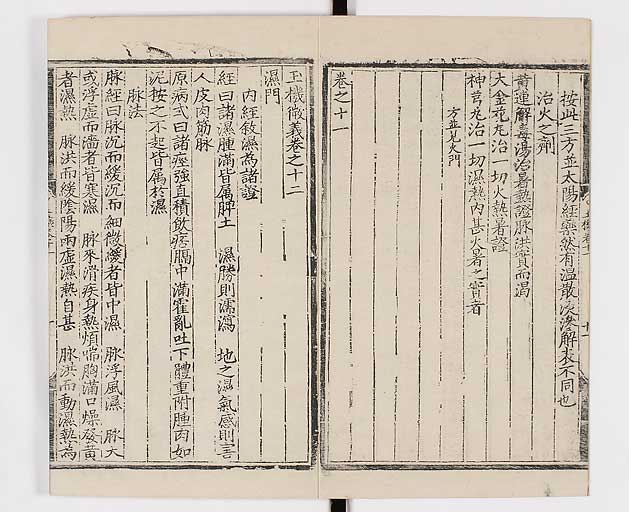 按此三方並太陽經藥然有温散滲解表不同也
治火之劑
黄連解毒湯治暑熱證脉洪實而渴
大金花丸治一切火熱暑證
神芎丸治一切濕熱内甚火暑之實者
方並見火門
卷之十一
玉機微義卷之十二
濕門
内經敘濕為諸證
經曰諸濕腫滿皆属脾土 濕勝則濡瀉 地之濕氣感則害
人皮肉筋脉
原病式曰諸痙強直積飲痞膈中滿霍亂吐下體重附腫肉如
泥按之不起皆属於濕
脉法
脉經曰脉沉而緩沉而細微緩者皆中濕 脉浮風濕 脉大
或浮虚而濇者皆寒濕 脉來滑疾身熱煩喘胸滿口燥發黄
者濕熱 脉洪而緩陰陽兩虚濕熱自甚 脉洪而動濕熱為